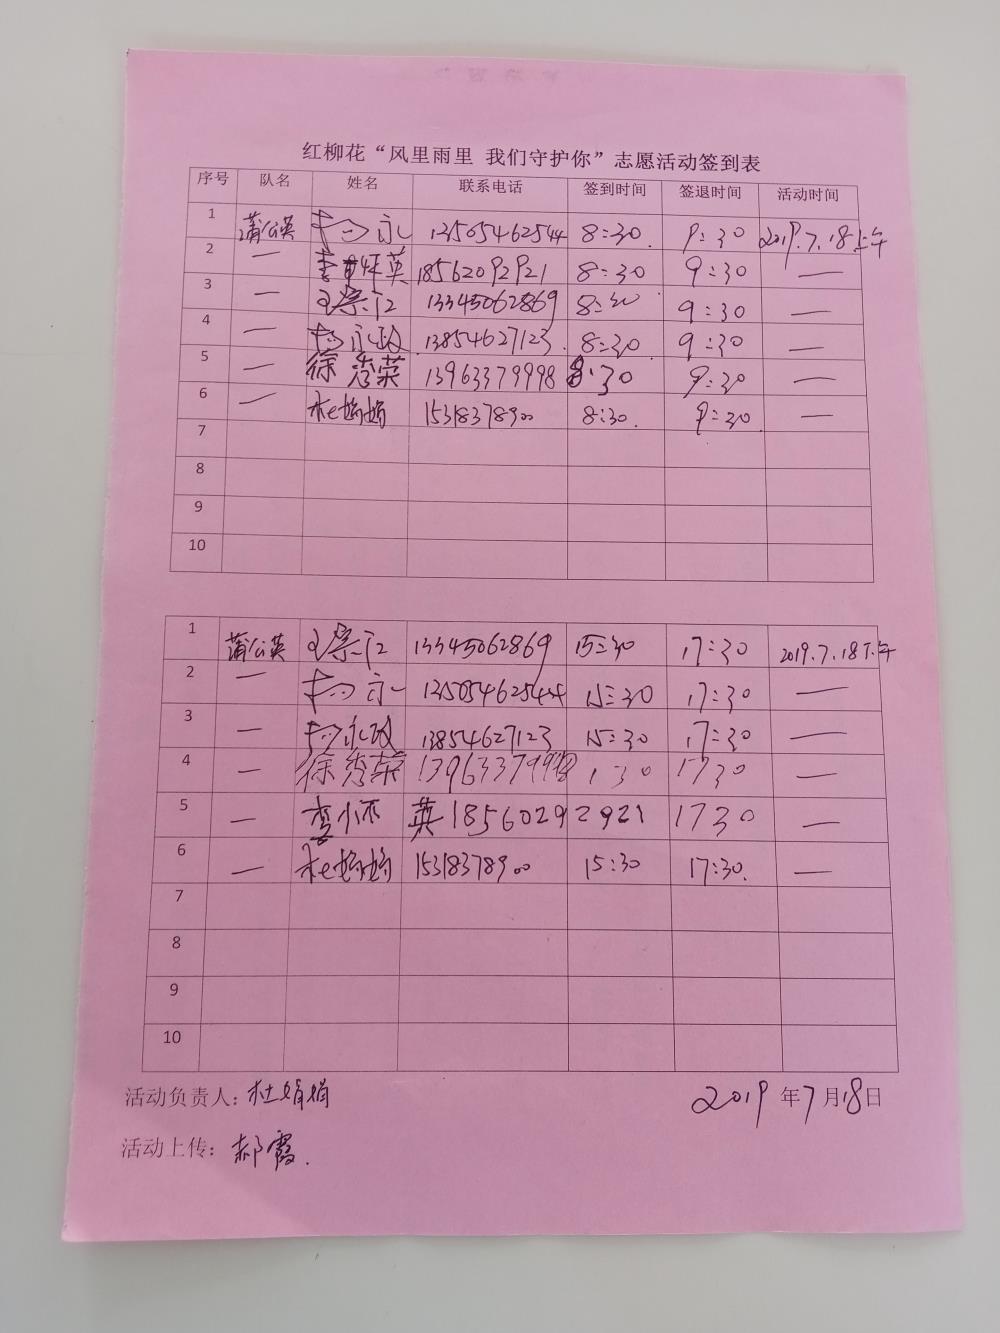 红柳花“风里雨里 我们守护你”志愿活动签到表
序号 队名 姓名 联系电话 签到时间 签退时间 活动时间
1 蒲公英 杨永 13505462544 8:30. 9:30 2019.7.18上午
2 — 李怀英 18562092921 8:30 9:30 —
3 — 王宗江 13345062869 8:30 9:30 —
4 — 杨永政 13854627123. 8:30. 9:30 —
5 — 徐秀荣 13963379998 8:30 9:30 —
6 — 杜娟娟 15318378900 8:30. 9:30. —
7
8
9
10
1 蒲公英 王宗江 13345062869 15:30 17:30 2019.7.18下午
2 — 杨永 13505462544 15:30 17:30 —
3 — 杨永政 13854627123 15:30 17:30 —
4 — 徐秀荣 1730 —
5 — 李怀英 18560292921 1730 —
6 — 杜娟娟 15318378900 15:30 17:30. —
7
8
9
10
活动负责人：杜娟娟 2019年7月18日
活动上传：郝霞.